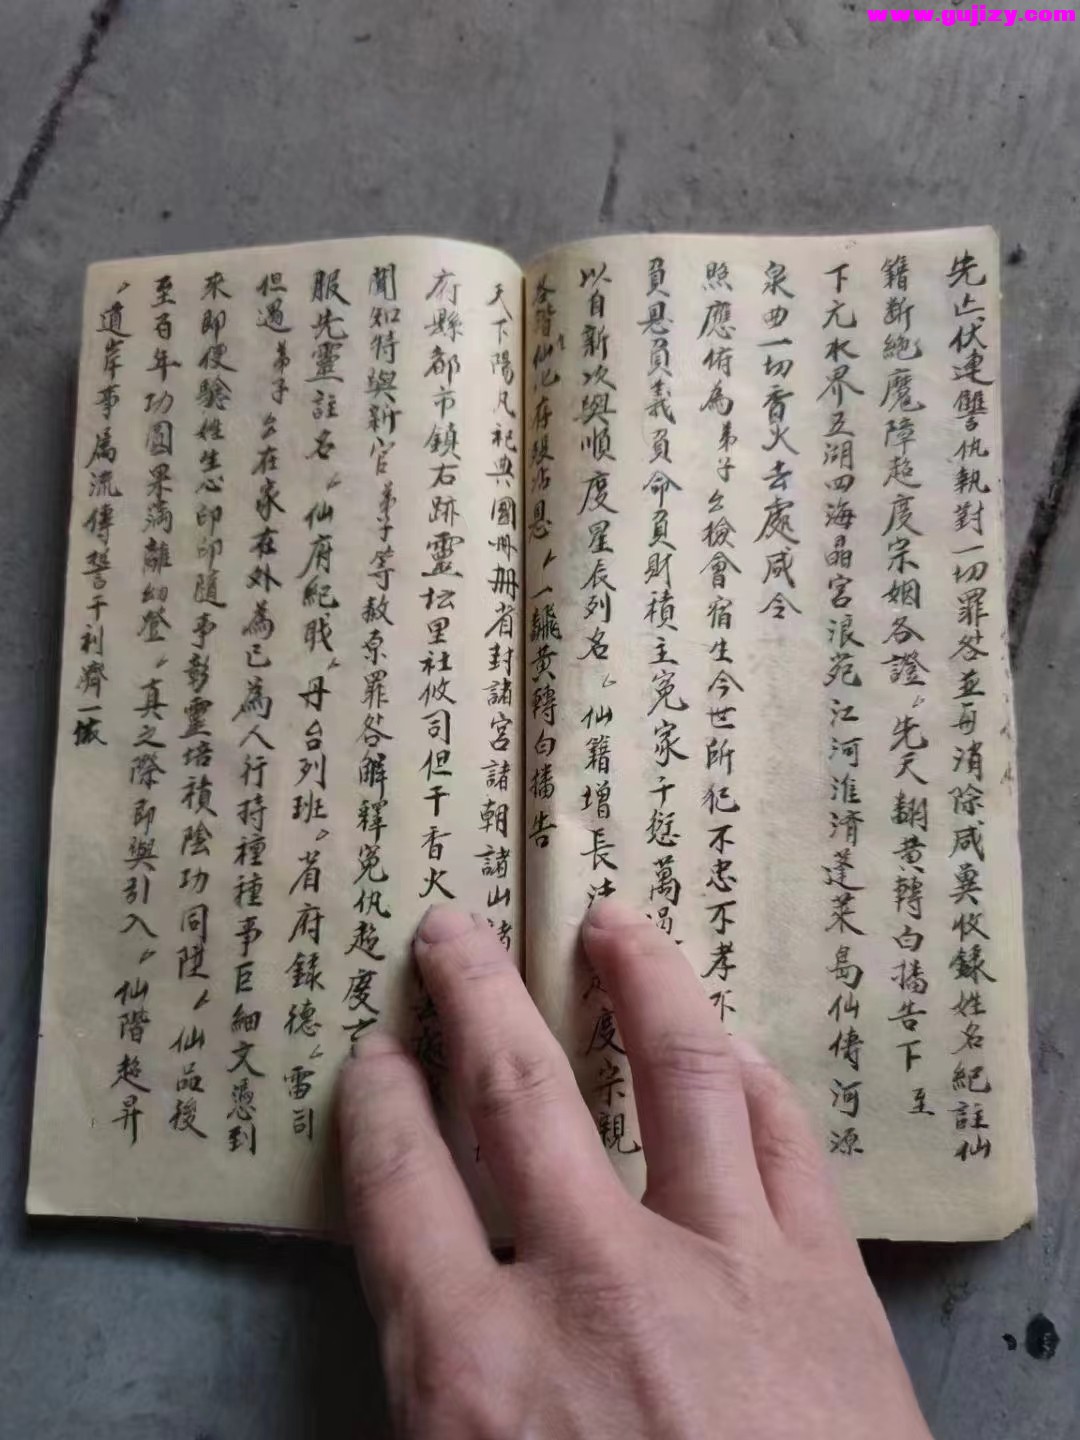 www.gujizy.com
先亡伏連讐仇執對一切罪咎並再消除咸與收錄姓名紀註仙
籍斷絕魔障超度宗姻各證先天翻黃轉白播告下至
下元水界五湖四海晶宮浪苑江河淮濟蓬萊島仙傳河源
泉曲一切香火去處咸令
照應俯為弟子厶檢會宿生今世所犯不忠不孝不
負恩負義負命負財積主冤家千愆萬過
以自新次與順度星辰列名仙籍增長法度宗親
各階仙化存歿沾恩一翻黃轉白播告
天下陽凡祀典國冊冊省封諸宮諸朝諸山諸
府縣都市鎮右跡靈坛里社攸司但干香火
聞知特與新官弟子等赦原罪咎解釋冤仇超度
服先靈註名仙府紀職丹台列班省府錄德雷司
但遇弟子厶在家在外為已為人行持種種事巨細文憑到
來即便驗姓生心印印隨事彰靈培禎陰功同陞仙品後
至百年功圓果滿離幻登真之際即與引入仙階超昇
道岸事属流傳誓干利濟一懺